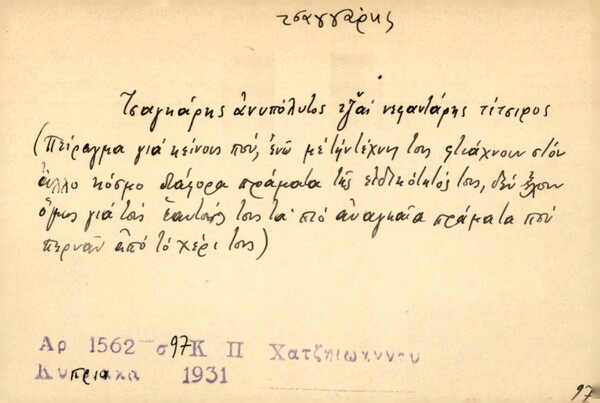 τσαγγάρης
Τσαγκάρης ἀνυπόλυτος τζ̌αὶ νεφαντάρης τίτσιρος
(Πείραγμα γιὰ κείνους πού, ἐνῶ μὲ τὴν τέχνη τους φτιάχνουν στὸν
ἄλλο κόσμο διάφορα πράματα τῆς εἰδικότητός τους, δὲν ἔχουν
ὅμως γιὰ τοὺς ἑαυτούς τους τὰ πιὸ ἀναγκαῖα πράματα ποὺ
περνοῦν ἀπὸ τὸ χέρι τους)
Αρ 1562 σ 97 Κ Π Χατζηιωαννου
Κυπριακα 1931
97